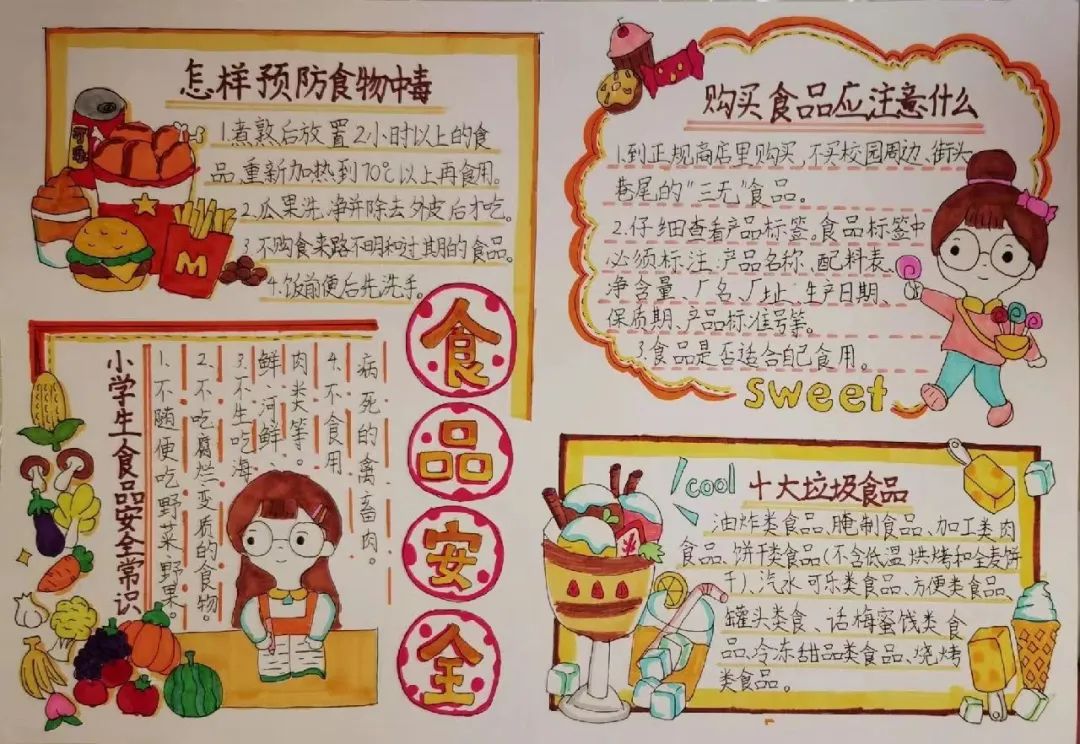 怎样预防食物中毒
1.煮熟后放置2小时以上的食
品,重新加热到70℃以上再食用。
2.瓜果洗净并除去外皮后才吃。
3.不购食来路不明和过期的食品。
4.饭前便后先洗手。
可
M
购买食品应注意什么
1.到正规商店里购买,不买校园周边、街头
巷尾的"三无"食品。
2.仔细查看产品标签。食品标签中
必须标注:产品名称、配料表、
净含量、厂名、厂址、生产日期、
保质期、产品标准号等。
3.食品是否适合自己食用。
sweet
食品安全
小学生食品安全常识
1.不随便吃野菜野果。
2.不吃腐烂变质的食物。
3.不生吃海
鲜、河鲜、
肉类等。
4.不食用
病死的禽畜肉。
cool
十大垃圾食品
油炸类食品、腌制食品、加工类肉
食品、饼干类食品(不含低温烘烤和全麦饼
干)、汽水可乐类食品、方便类食品、
罐头类食、话梅蜜饯类食
品、冷冻甜品类食品、烧烤
类食品。